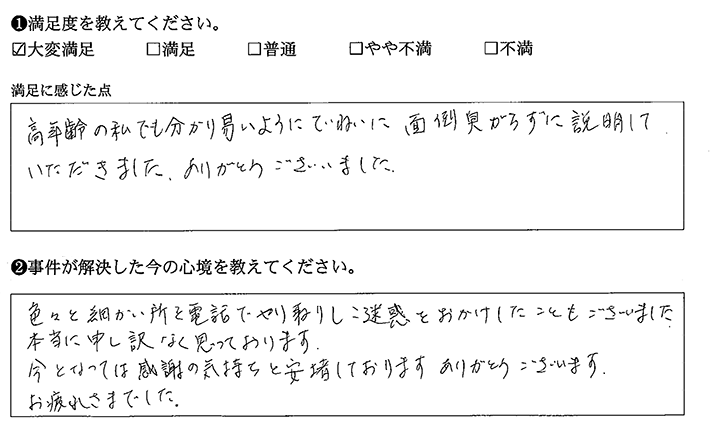 ❶満足度を教えてください。
☑大変満足 □満足 □普通 □やや不満 □不満
満足に感じた点
高年齢の私でも分かり易いようにていねいに 面倒臭がらずに説明して
いただきました。ありがとうございました。
❷事件が解決した今の心境を教えてください。
色々と細かい所を電話でやり取りしご迷惑をおかけしたこともございました
本当に申し訳なく思っております。
今となっては感謝の気持ちと安堵しております ありがとうございます。
お疲れさまでした。